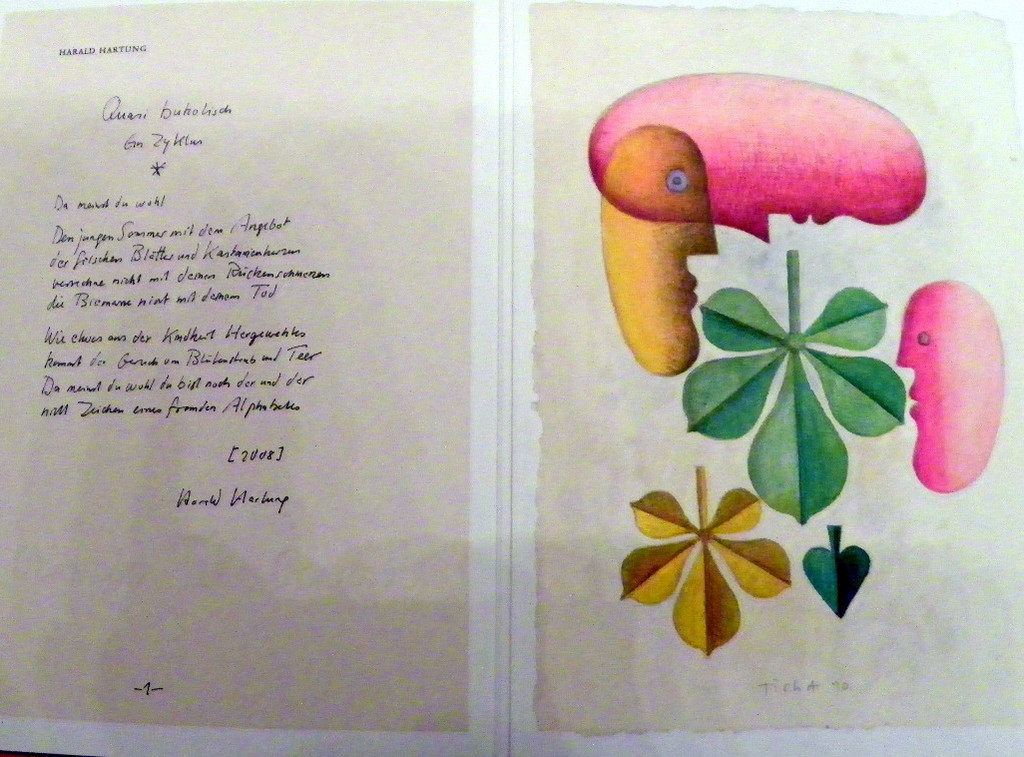 HARALD HARTUNG
Quasi bukolisch
Ein Zyklus
*
Du meinst du wohl
Den jungen Sommer mit dem Angebot
der frischen Blätter und Kastanienkerzen
verrechne nicht mit deinen Rückenschmerzen
die Biomasse nicht mit deinem Tod
Wie etwas aus der Kindheit Hergewehtes
kommt der Geruch von Blütenstaub und Teer
Da meinst du wohl du bist noch der und der
nicht Zeichen eines fremden Alphabetes
[2008]
Harald Hartung
-1-
TichA 10